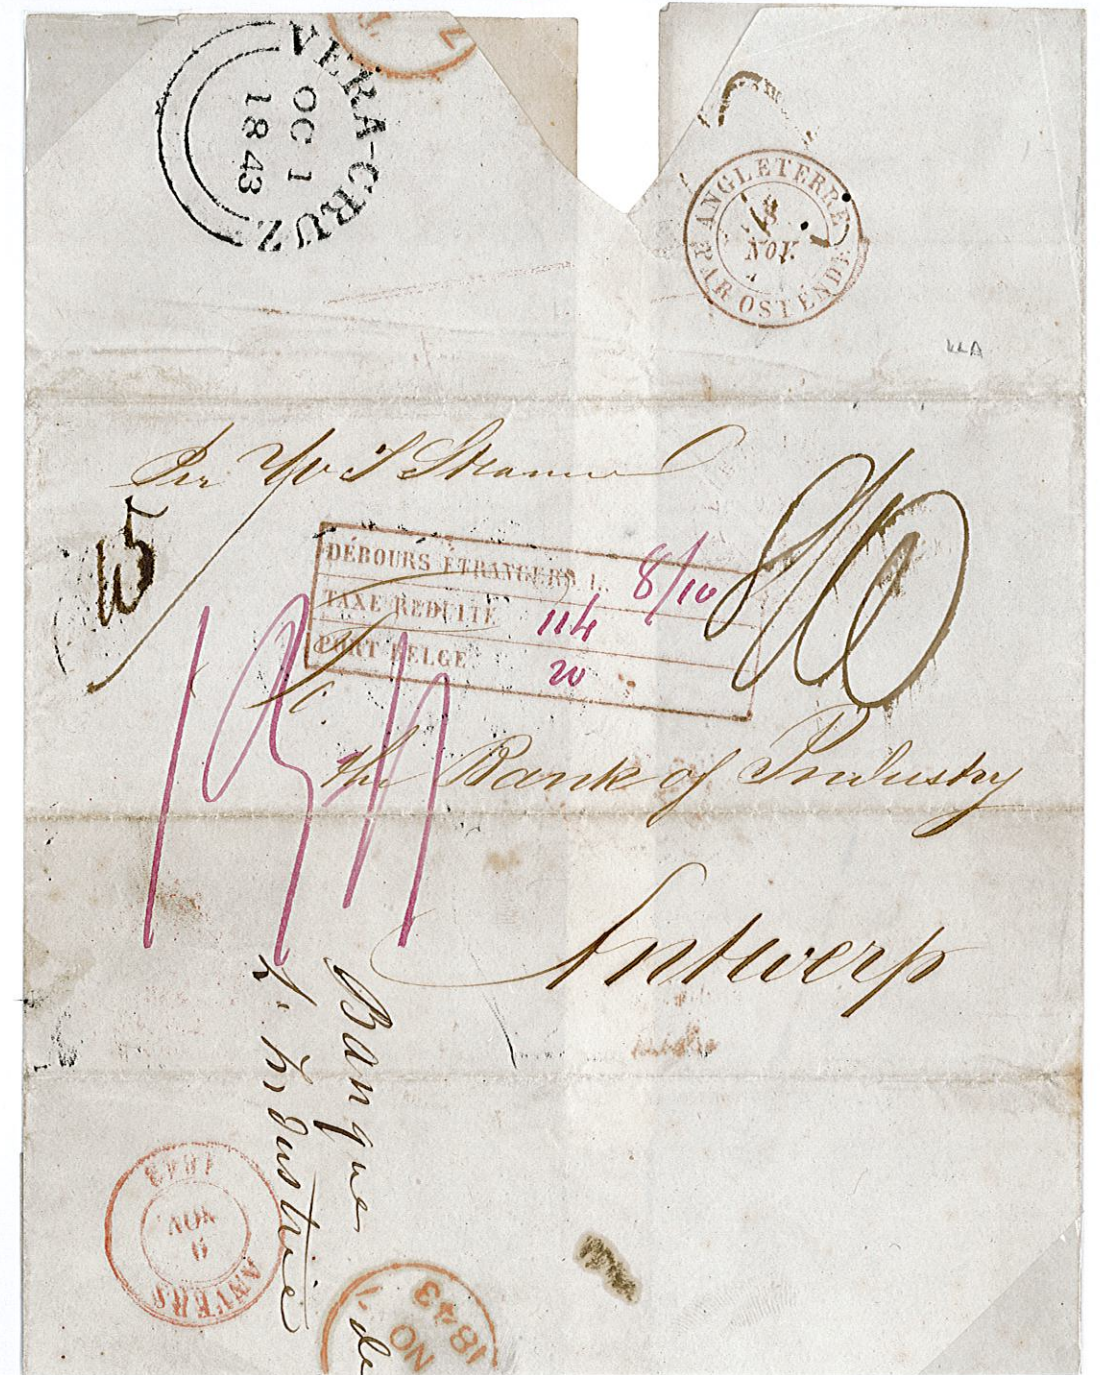 VERA-CRUZ
OC 1
1843
ANGLETERRE
NOV.
PAR OSTENDE
Per W I Steamer
DÉBOURS ÉTRANGERS 1.
8/10
TAXE REDUITE
114
PORT BELGE.
20
To
the Bank of Industry
Antwerp
Banque de
L'Industrie
1843
NOV
ANVERS
NO
1843